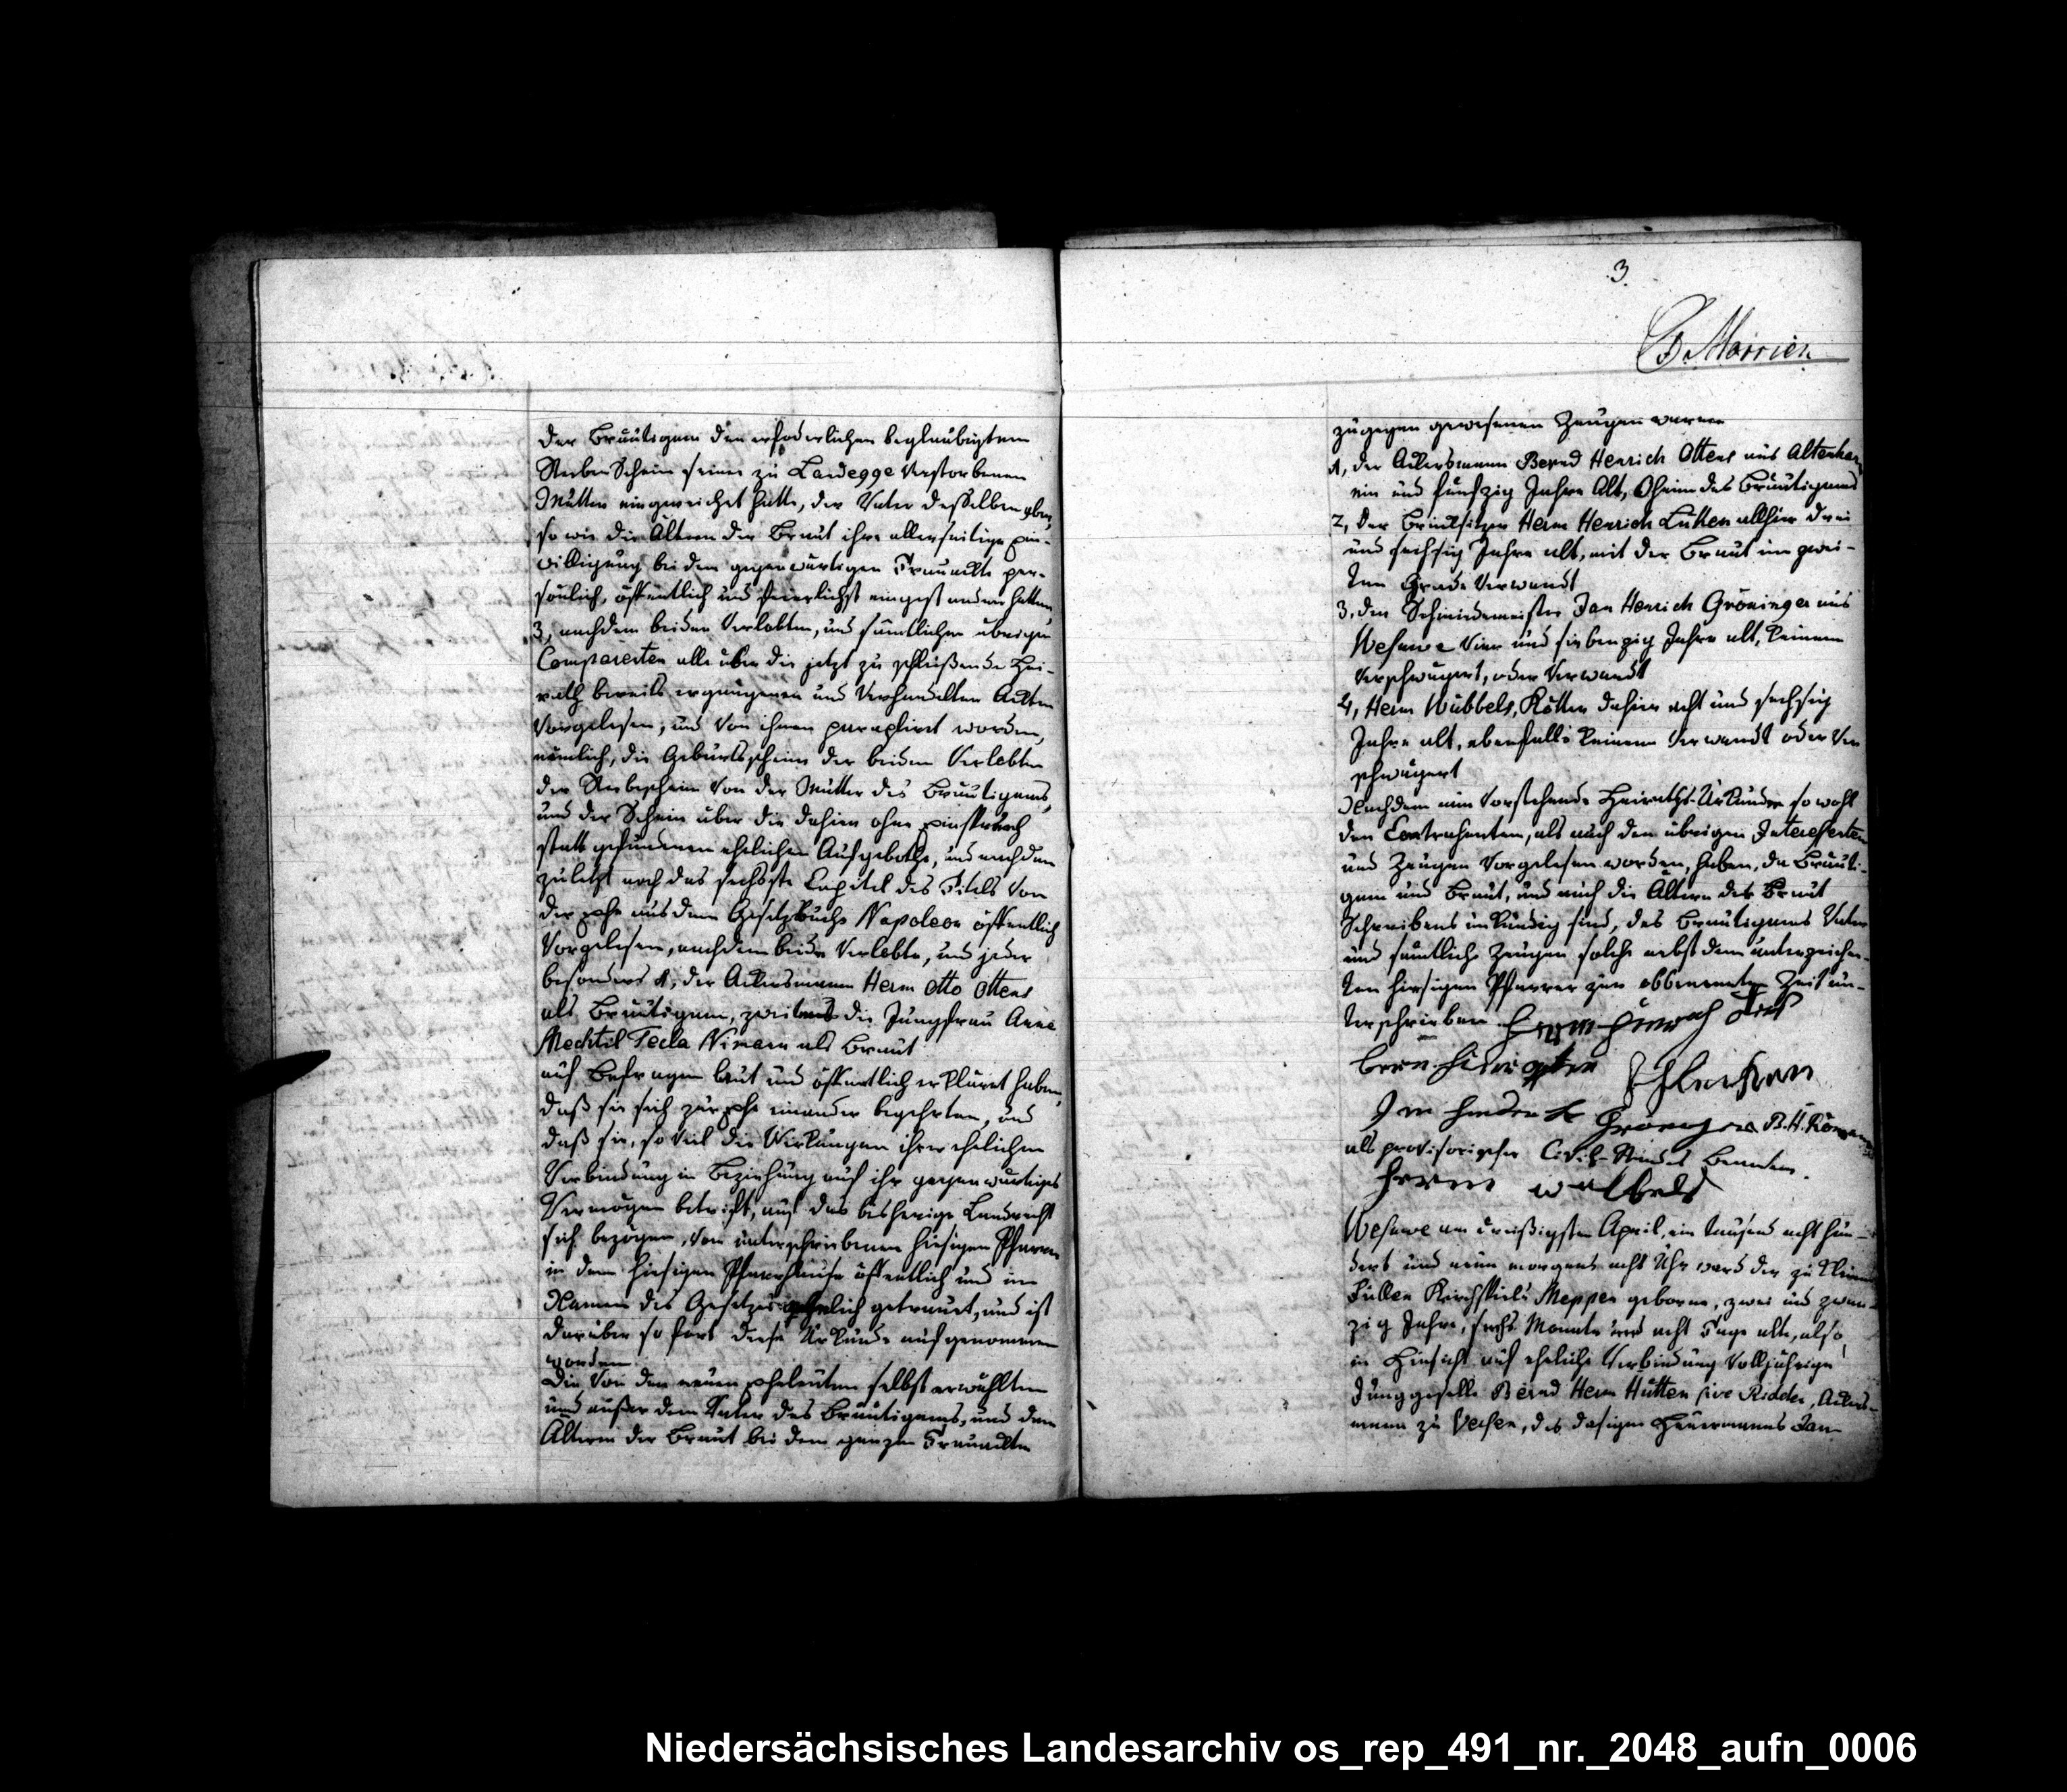 der Bräutigam den erfoderlichen beglaubigten
Sterbeschein seiner zu Landegge verstorbenen
Mutter eingereichet hatte, der Vater desselben eben
so wie die Ältern der Braut ihre allerseitige Ein-
villigung bei dem gegenwärtigen Trauackte per-
sönlich, öffentlich und feierlichst eingestanden hatten
3, nachdem beiden Verlobten, und sämtlichen übrigen
Comparenten alle über die jetzt zu schließende Hei-
rath bereits ergangenen und verhandelten Ackten
vorgelesen, und von ihnen paraphirt worden,
nämlich, die Geburtsscheine der beiden Verlobten
der Sterbeschein von der Mutter des Bräutigams,
und der Schein über die dahier ohne Einspruch
statt gefundenen ehelichen Aufgebothe, und nachdem
zuletzt noch das sechste Capitel des Titels von
der Ehe aus dem Gesetzbuche Napoleon öffentlich
vorgelesen, nachdem beide Verlobte, und jeder
besonders 1, der Ackersmann Herm Otto Ottens
als Bräutigam, zweitens die Jungfrau Anna
Mechtil Tecla Nimann als Braut
auf Befragen laut und öffentlich erkläret haben,
daß sie sich zur Ehe einander begehrten, und
daß sie, so viel die Wirkungen ihrer ehelichen
Verbindung in Beziehung auf ihr gegenwärtiges
Vermögen betrift, auf das bisherige Landrecht
sich bezögen, von unterschriebenen hiesigen Pfarrer
in dem hiesigen Pfarrhause öffentlich und im
Namen des Gesetzes ehelich getrauet, und ist
darüber so fort diese Urkunde aufgenommen
worden.
Die von den neuen Eheleuten selbst erwählten
und außer dem Vater des Bräutigams, und den
Ältern der Braut bei dem ganzen Trauackte
3.
Morrien
zugegen gewesenen Zeugen waren
1, der Ackersmann Bernd Henrich Ottens aus Altenhar
ein und fünfzig Jahre Alt, Oheim des Bräutigams
2, der Brinksitzer Herm Henrich Lüken allhier drei
und sechsig Jahre alt, mit der Braut im zwei-
ten Grade Verwandt
3. der Schmidemeister Jan Henrich Gröninger aus
Wesuwe vier und siebenzig Jahre alt, keinem
Verschwägert, oder Verwandt
4, Herm Wübbels, Kötter dahier acht und sechsig
Jahre alt, ebenfalls keinem Verwandt oder Ver
schwägert
Nachdem nun Vorstehende Heiraths-Urkunde so wohl
den Contrahenten, als auch den übrigen Interessenten
und Zeugen Vorgelesen worden, haben, da Bräuti-
gam und Braut, und auch die Ältern der Braut
Schreibens unkundig sind, des Bräutigams Vater
und sämtliche Zeugen solche nebst dem unterzeichne-
ten hiesigen Pfarrer zur obbenannten Zeit un-
terschrieben
B. H.
als provisorischer Civil-Standes Beamter.
Herm wübbels
Wesuwe am dreißigsten April, ein tausend acht hun-
dert und neun morgens acht Uhr ward der zu kleinen
Fullen Kirchspiels Meppen geborne, zwei und zwan-
zig Jahre, sechs Monate und acht Tage alte, also
in Hinsicht auf eheliche Verbindung Volljährige
Junggeselle Bernd Herm Hütten sive Ridder, Ackers-
mann zu Versen, des dasigen Heuermanns Jan
Niedersächsisches Landesarchiv os_rep_491_nr._2048_aufn_0006